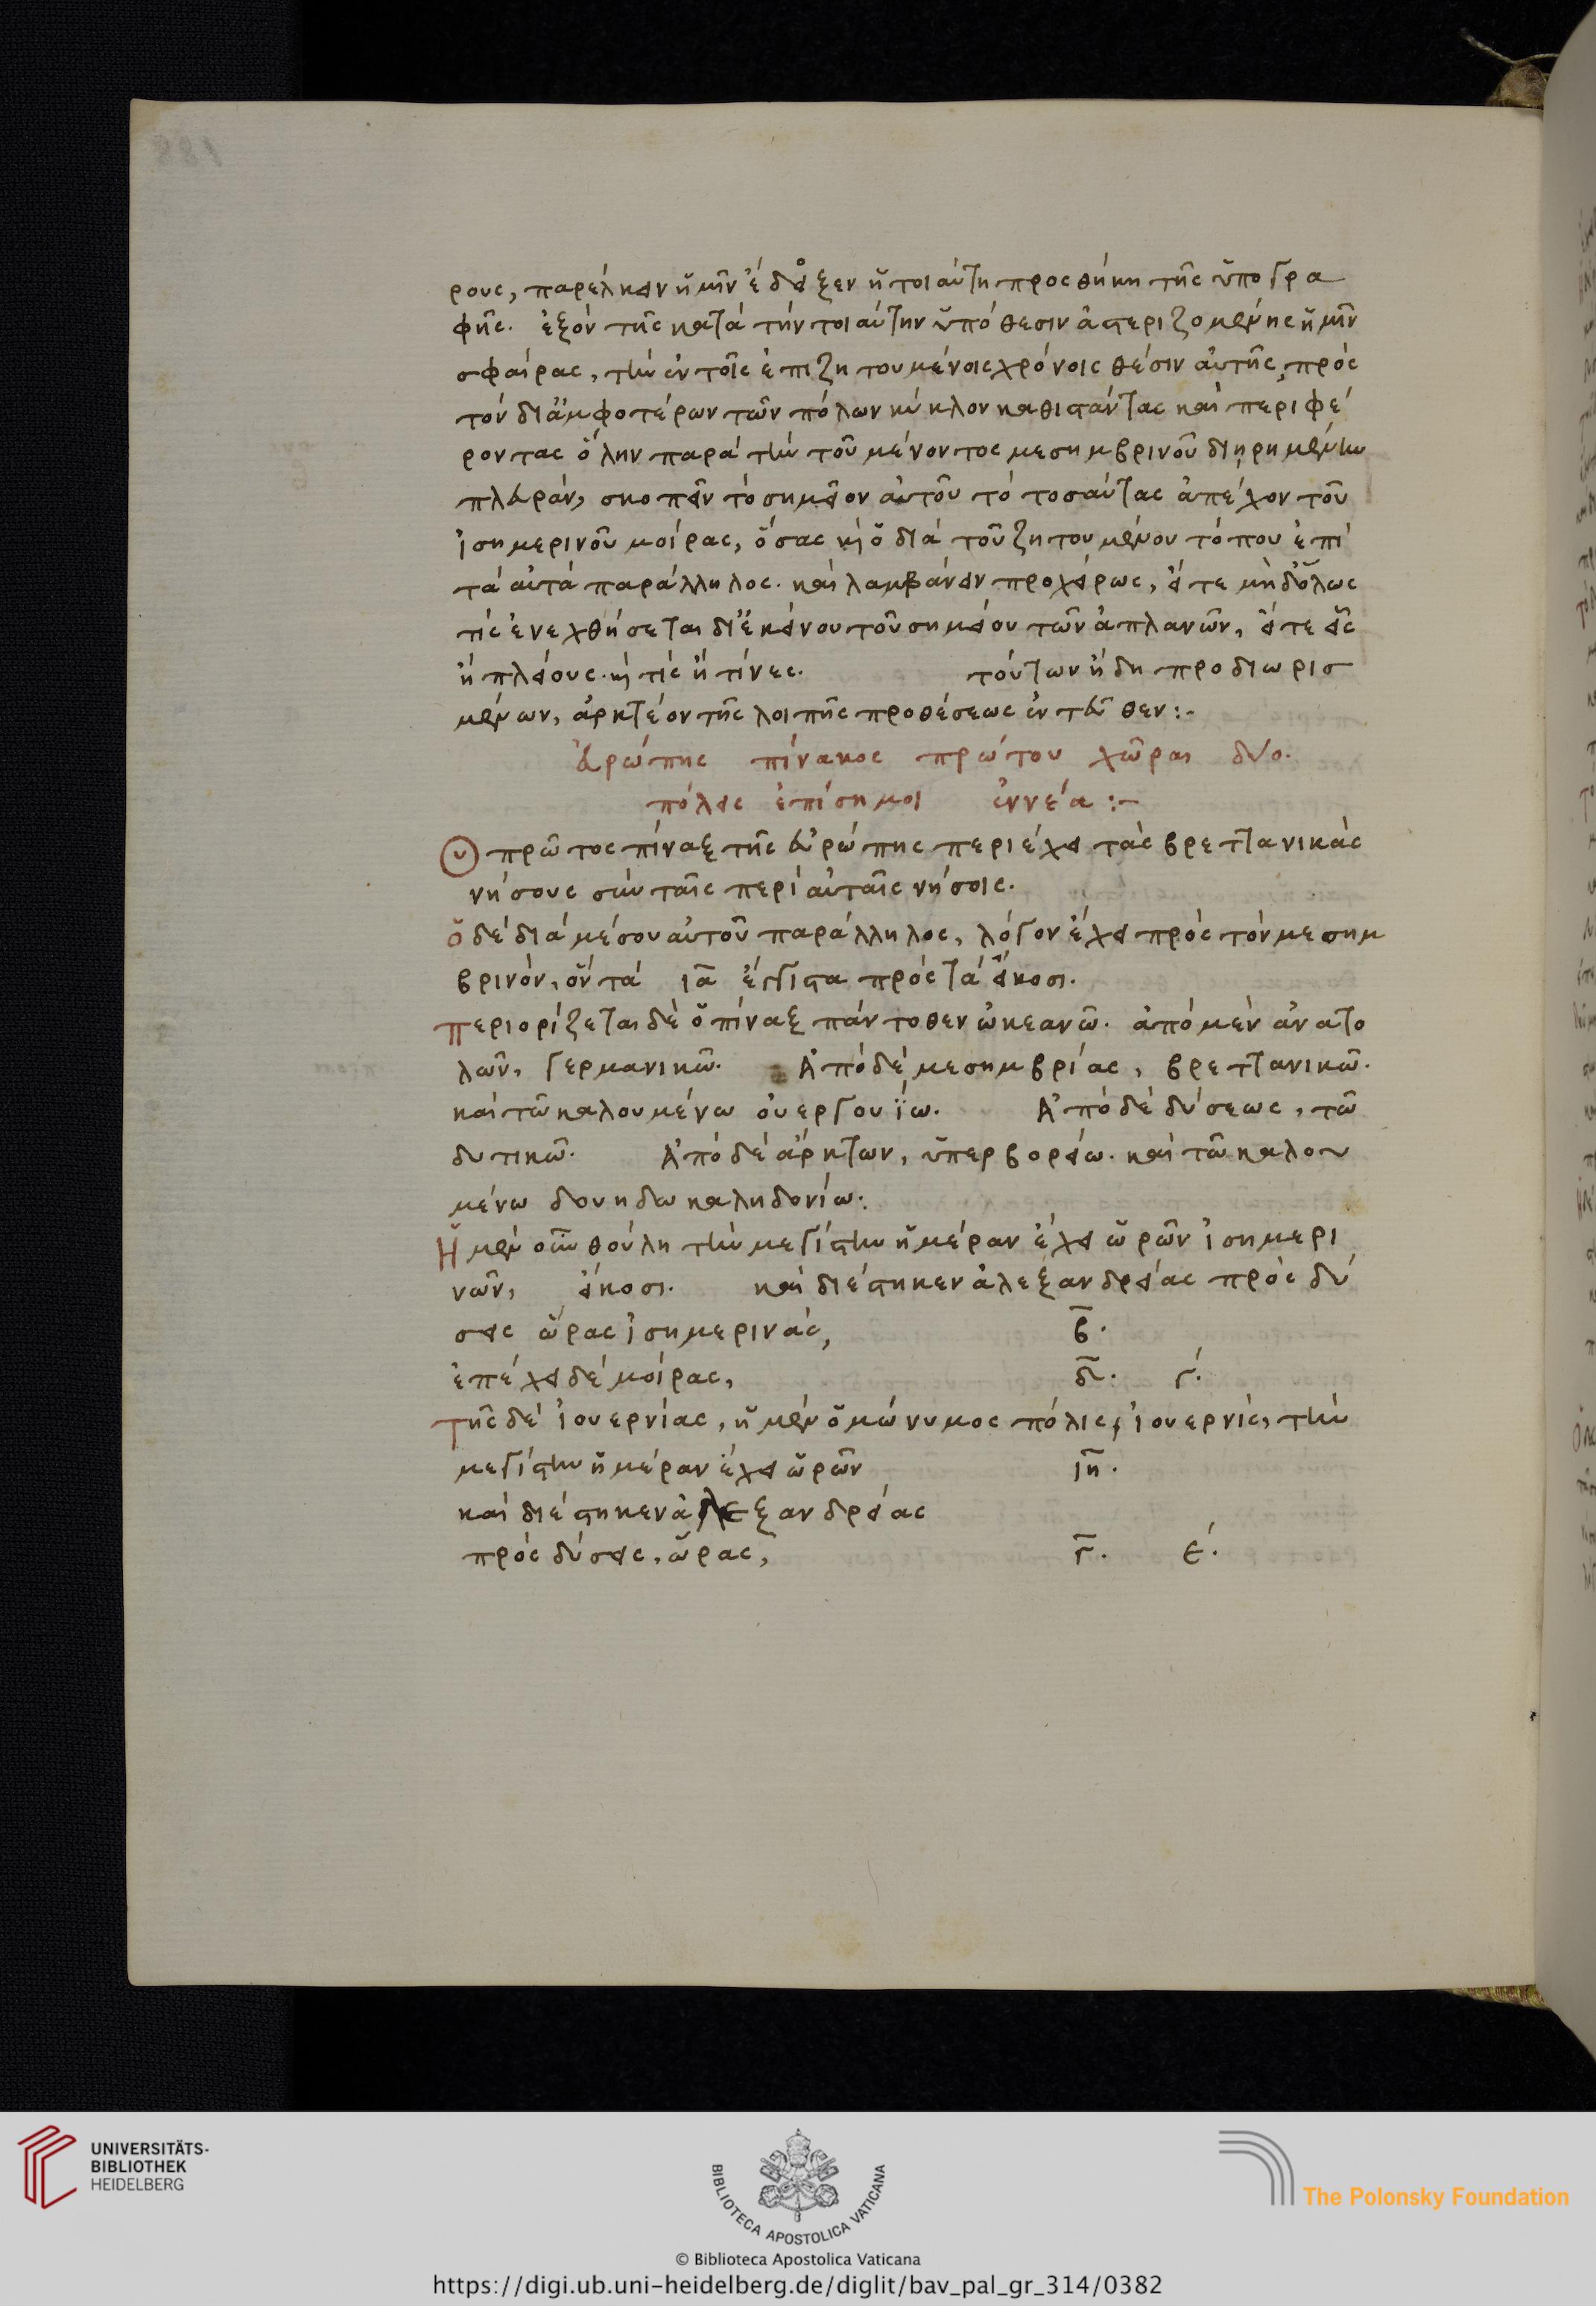 ρους, παρέλκειν ἡμῖν ἔδοξεν ἡ τοιαύτη προσθήκη τῆς ὑπογρα
φῆς. ἐξὸν τῆς κατὰ τὴν τοιαύτην ὑπόθεσιν ἀστεριζομένης ἡμῖν
σφαίρας, τὴν ἐν τοῖς ἐπιζητουμένοις χρόνοις θέσιν αὐτῆς, πρὸς
τὸν δι' ἀμφοτέρων τῶν πόλων κύκλον καθιστάντας καὶ περιφέ
ροντας ὅλην παρὰ τὴν τοῦ μένοντος μεσημβρινοῦ διῃρημένην
πλευρὰν, σκοπεῖν τὸ σημεῖον αὐτοῦ τὸ τοσαύτας ἀπέχον τοῦ
ἰσημερινοῦ μοίρας, ὅσας κ ὁ διὰ τοῦ ζητουμένου τόπου ἐπὶ
τὰ αὐτὰ παράλληλος. καὶ λαμβάνειν προχείρως, εἴτε μὴδ' ὅλως
τίς ἐνεχθήσεται δι' ἐκείνου τοῦ σημείου τῶν ἀπλανῶν, εἴτε εἷς
ἢ πλείους. κ τίς ἢ τίνες. τούτων ἤδη προδιωρισ
μένων, ἀρκτέον τῆς λοιπῆς προθέσεως ἐντεῦθεν :-
Εὐρώπης πίνακος πρώτου χῶραι δύο.
πόλεις ἐπίσημοι ἐννέα :-
Ὁ πρῶτος πίναξ τῆς εὐρώπης περιέχει τὰς βρεττανικὰς
νήσους σὺν ταῖς περὶ αὐταῖς νήσοις.
ὁ δὲ διὰ μέσου αὐτοῦ παράλληλος, λόγον ἔχει πρὸς τὸν μεσημ
βρινόν, ὃν τὰ ια ἔγγιστα πρὸς τὰ εἴκοσι.
Περιορίζεται δὲ ὁ πίναξ πάντοθεν ὠκεανῶ. ἀπὸ μὲν ἀνατο
λῶν, γερμανικῶ. Ἀπὸ δὲ μεσημβρίας, βρεττανικῶ.
καὶ τῶ καλουμένω οὐεργουΐω. Ἀπὸ δὲ δύσεως, τῶ
δυτικῶ. Ἀπὸ δὲ ἄρκτων, ὑπερβορείω. καὶ τῶ καλου
μένω δουηδω καληδονίω:
Ἡ μὲν οὖν θούλη τὴν μεγίστην ἡμέραν ἔχει ὡρῶν ἰσημερι
νῶν, εἴκοσι. καὶ διέστηκεν ἀλεξανδρείας πρὸς δύ
σεις ὥρας ἰσημερινάς, β.
ἐπέχει δὲ μοίρας, δ. γ´.
Τῆς δὲ ἰουερνίας, ἡ μὲν ὁμώνυμος πόλις, ἰουερνίς, τὴν
μεγίστην ἡμέραν ἔχει ὡρῶν ιη.
καὶ διέστηκεν ἀλεξανδρείας
πρὸς δύσεις, ὥρας, γ. ε´.
UNIVERSITÄTS-
BIBLIOTHEK
HEIDELBERG
BIBLIOTECA APOSTOLICA VATICANA
The Polonsky Foundation
© Biblioteca Apostolica Vaticana
https://digi.ub.uni-heidelberg.de/diglit/bav_pal_gr_314/0382